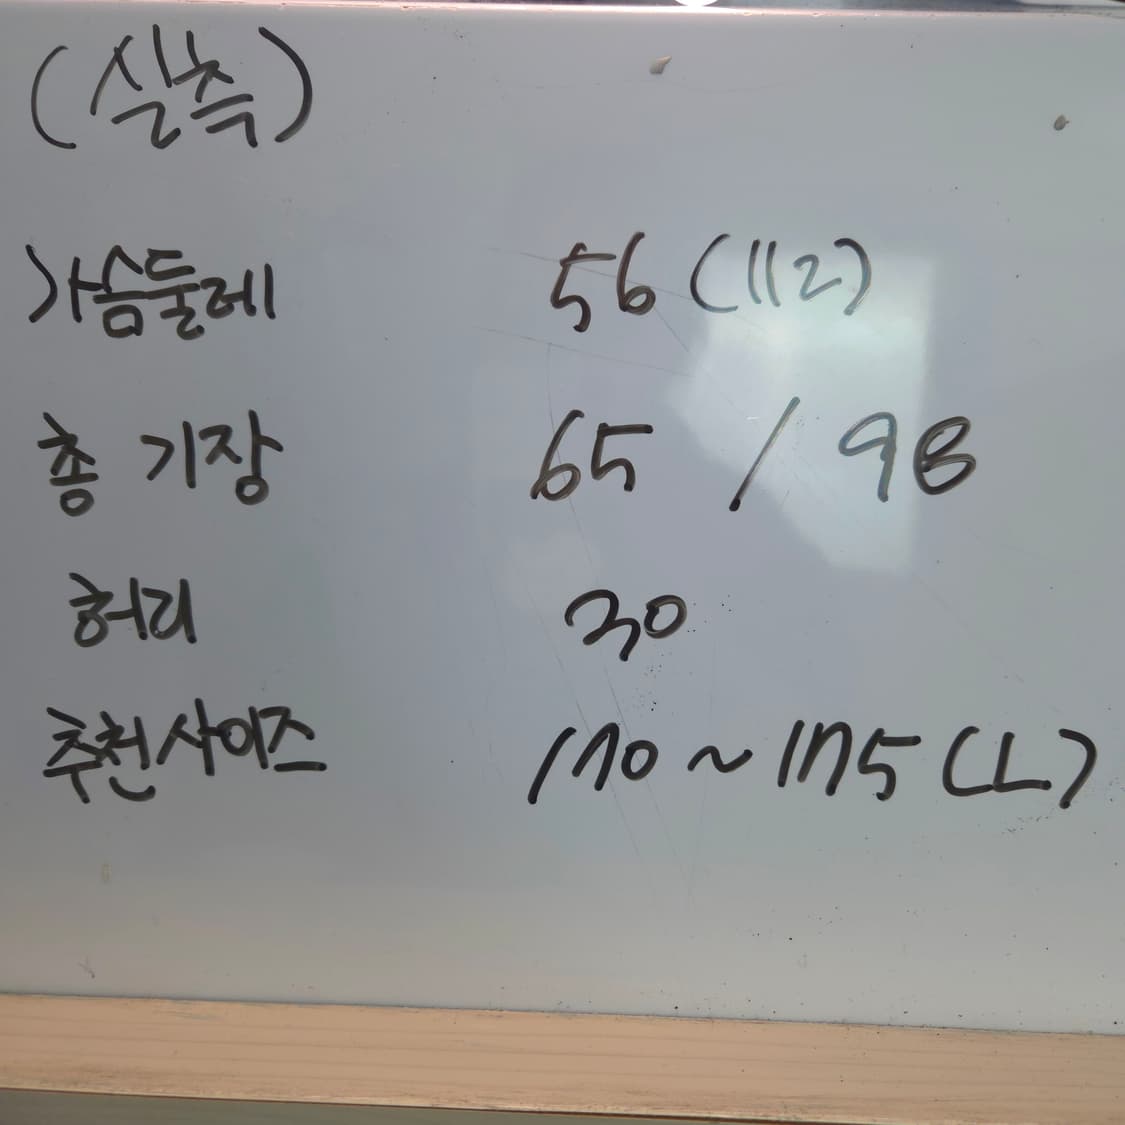 (실측)
가슴둘레 56 (112)
총 기장 65 / 98
허리 30
추천사이즈 170 ~ 175 (L)